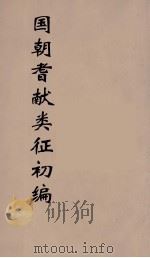 国朝耆献类征初编
mtoou.info
mtoou.com